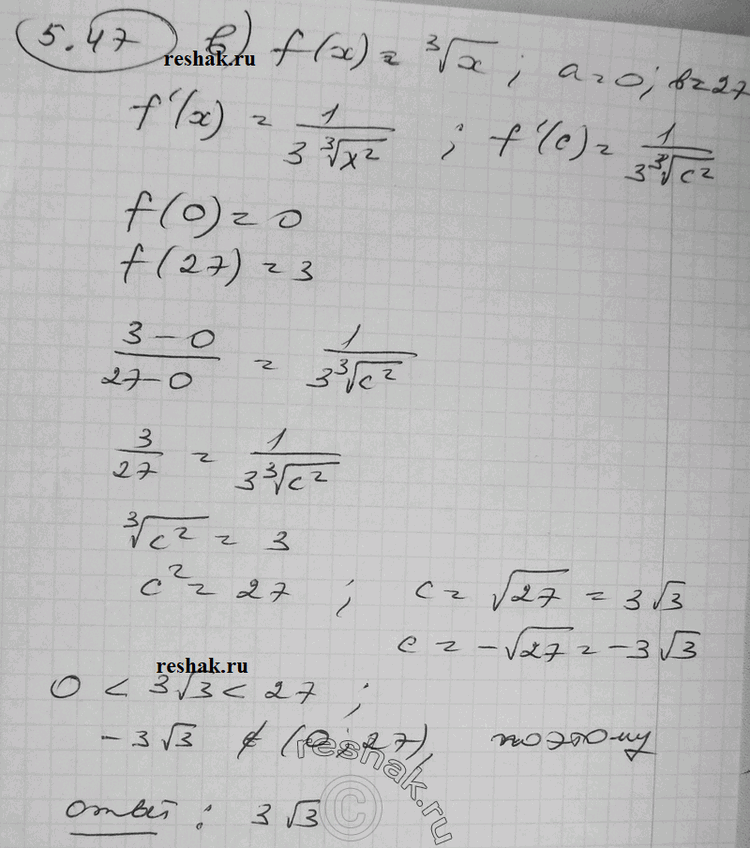 5.47 в) f(x) = ∛x ; a=0; в=27
reshak.ru
f'(x) = 1/(3∛x²) ; f'(c) = 1/(3∛c²)
f(0) = 0
f(27) = 3
(3-0)/(27-0) = 1/(3∛c²)
3/27 = 1/(3∛c²)
∛c² = 3
c² = 27 ; c = √27 = 3√3
c = -√27 = -3√3
reshak.ru
0 < 3√3 < 27 ;
-3√3 ∉ (0; 27), поэтому
reshak.ru
©
ответ : 3√3